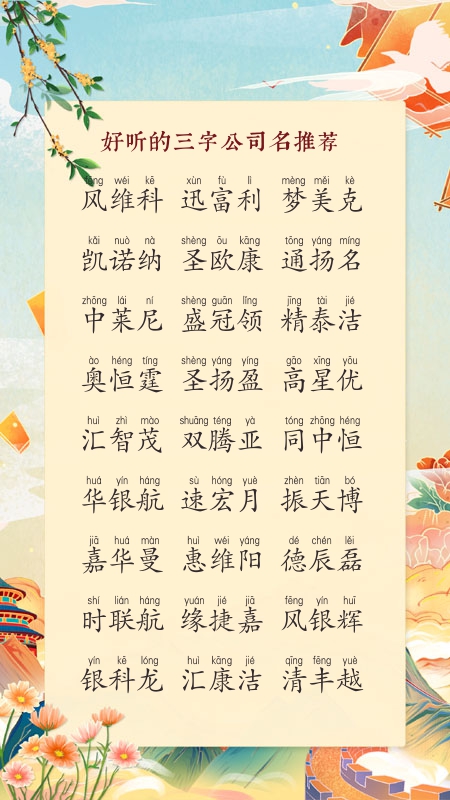 好听的三字公司名推荐
fēng wéi kē xùn fù lì mèng měi kè
风维科 迅富利 梦美克
kǎi nuò nà shèng ōu kāng tōng yáng míng
凯诺纳 圣欧康 通扬名
zhōng lái ní shèng guān lǐng jīng tài jié
中莱尼 盛冠领 精泰洁
ào héng tíng shèng yáng yíng gāo xīng yōu
奥恒霆 圣扬盈 高星优
huì zhì mào shuāng téng yà tóng zhōng héng
汇智茂 双腾亚 同中恒
huá yín háng sù hóng yuè zhèn tiān bó
华银航 速宏月 振天博
jiā huá màn huì wéi yáng dé chén lěi
嘉华曼 惠维阳 德辰磊
shí lián háng yuán jié jiā fēng yín huī
时联航 缘捷嘉 风银辉
yín kē lóng huì kāng jié qīng fēng yuè
银科龙 汇康洁 清丰越